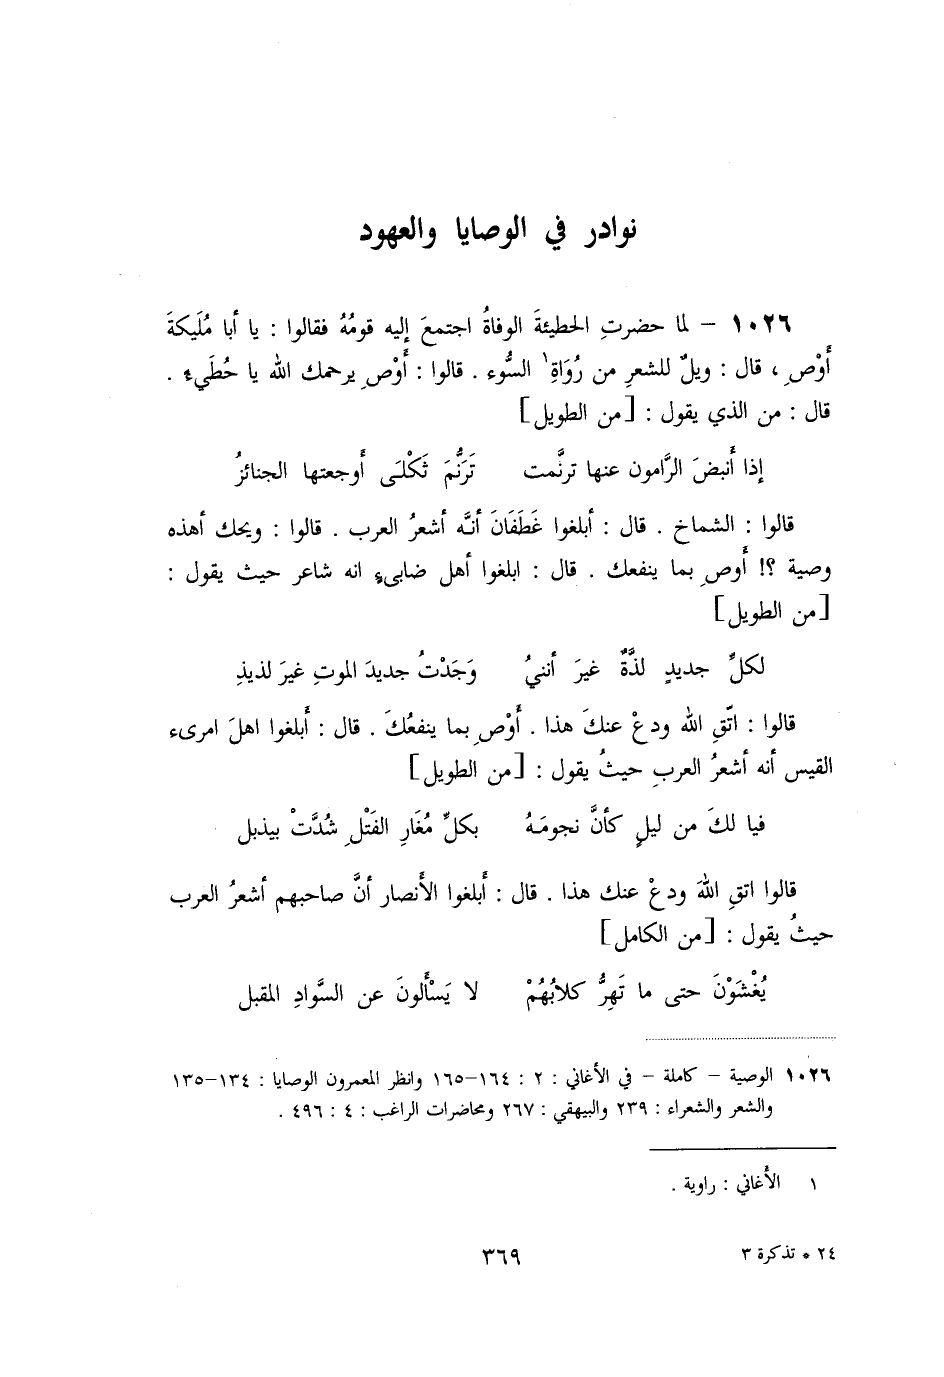 نوادر في الوصايا والعهود
١٠٢٦ – لما حضرتِ الحطيئةَ الوفاةُ اجتمعَ إليه قومُهُ فقالوا : يا أبا مُلَيكةَ
أَوْصِ ، قال : ويلٌ للشعرِ من رُوَاةِ١ السُّوء . قالوا : أَوْصِ يرحمك الله يا حُطَيء .
قال : من الذي يقول : [من الطويل]
إذا أَنبضَ الرَّامون عنها ترنَّمت تَرَنُّمَ ثَكْلَى أَوجعتها الجنائزُ
قالوا : الشماخ . قال : أبلغوا غَطَفَانَ أنَّه أشعرُ العرب . قالوا : ويحك أهذه
وصية ؟! أَوصِ بما ينفعك . قال : ابلغوا أهل ضابىءٍ انه شاعر حيث يقول :
[من الطويل]
لكلِّ جديدٍ لذَّةٌ غيرَ أننيُ وَجَدْتُ جديدَ الموتِ غيرَ لذيذِ
قالوا : اتّقِ الله ودعْ عنكَ هذا . أَوْصِ بما ينفعُكَ . قال : أَبلغوا اهلَ امرىء
القيس أنه أشعرُ العربِ حيثُ يقول : [من الطويل]
فيا لكَ من ليلٍ كأنَّ نجومَهُ بكلِّ مُغَارِ الفَتْلِ شُدَّتْ بيذبل
قالوا اتقِ اللهَ ودعْ عنك هذا . قال : أَبلغوا الأَنصار أنَّ صاحبهم أشعرُ العرب
حيثُ يقول : [من الكامل]
يُغْشَوْنَ حتى ما تَهِرُّ كلابُهُمْ لا يَسْأَلونَ عن السَّوادِ المقبل
١٠٢٦ الوصية – كاملة – في الأغاني : ٢ : ١٦٤–١٦٥ وانظر المعمرون الوصايا : ١٣٤–١٣٥
والشعر والشعراء : ٢٣٩ والبيهقي : ٢٦٧ ومحاضرات الراغب : ٤ : ٤٩٦ .
١ الأَغاني : راوية .
٢٤ * تذكرة ٣
٣٦٩